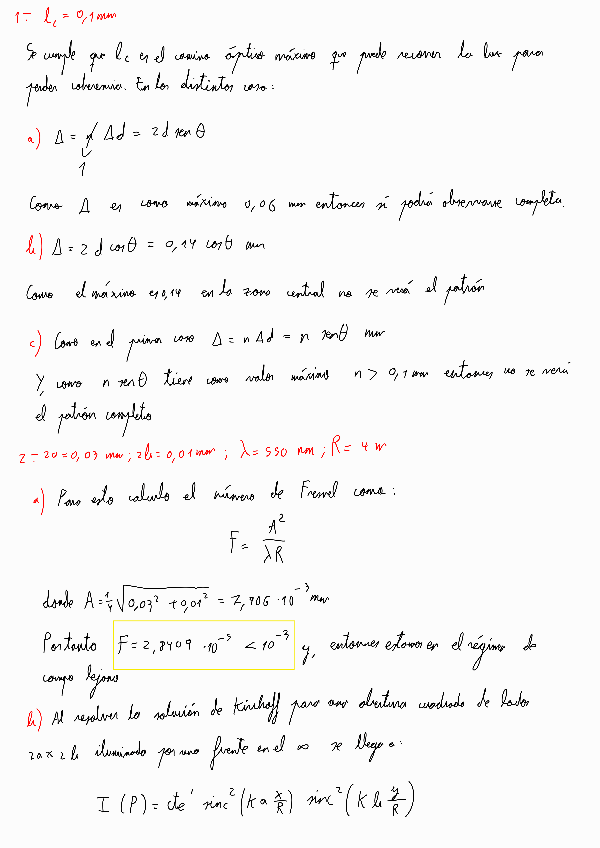 1.- lc = 0,1 mm
Se cumple que lc es el camino óptico máximo que puede recorrer la luz para
perder coherencia. En los distintos casos:
a) Δ = n Δd = 2d sen θ
1
Como Δ es como máximo 0,06 mm entonces sí podrá observarse completa.
b) Δ = 2 d cosθ = 0,14 cosθ mm
Como el máximo es 0,14 en la zona central no se verá el patrón
c) Como en el primer caso Δ = n Δd = n senθ mm
Y, como n senθ tiene como valor máximo n > 0,1 mm entonces no se verá
el patrón completo
2.- 2a = 0,03 mm ; 2b = 0,01 mm ; λ = 550 nm ; R = 4 m
a) Para esto calculo el número de Fresnel como:
F = A² / λR
donde A = 1/4 √(0,03² + 0,01²) = 7,906 · 10⁻³ mm
Por tanto F = 2,8409 · 10⁻⁵ < 10⁻³ y, entonces estamos en el régimen de
campo lejano
b) Al resolver la solución de Kirchoff para una abertura cuadrada de lados
2a x 2b iluminada por una frente en el ∞ se llega a:
I (P) = cte' sinc² (K a x/R) sinc² (K b y/R)